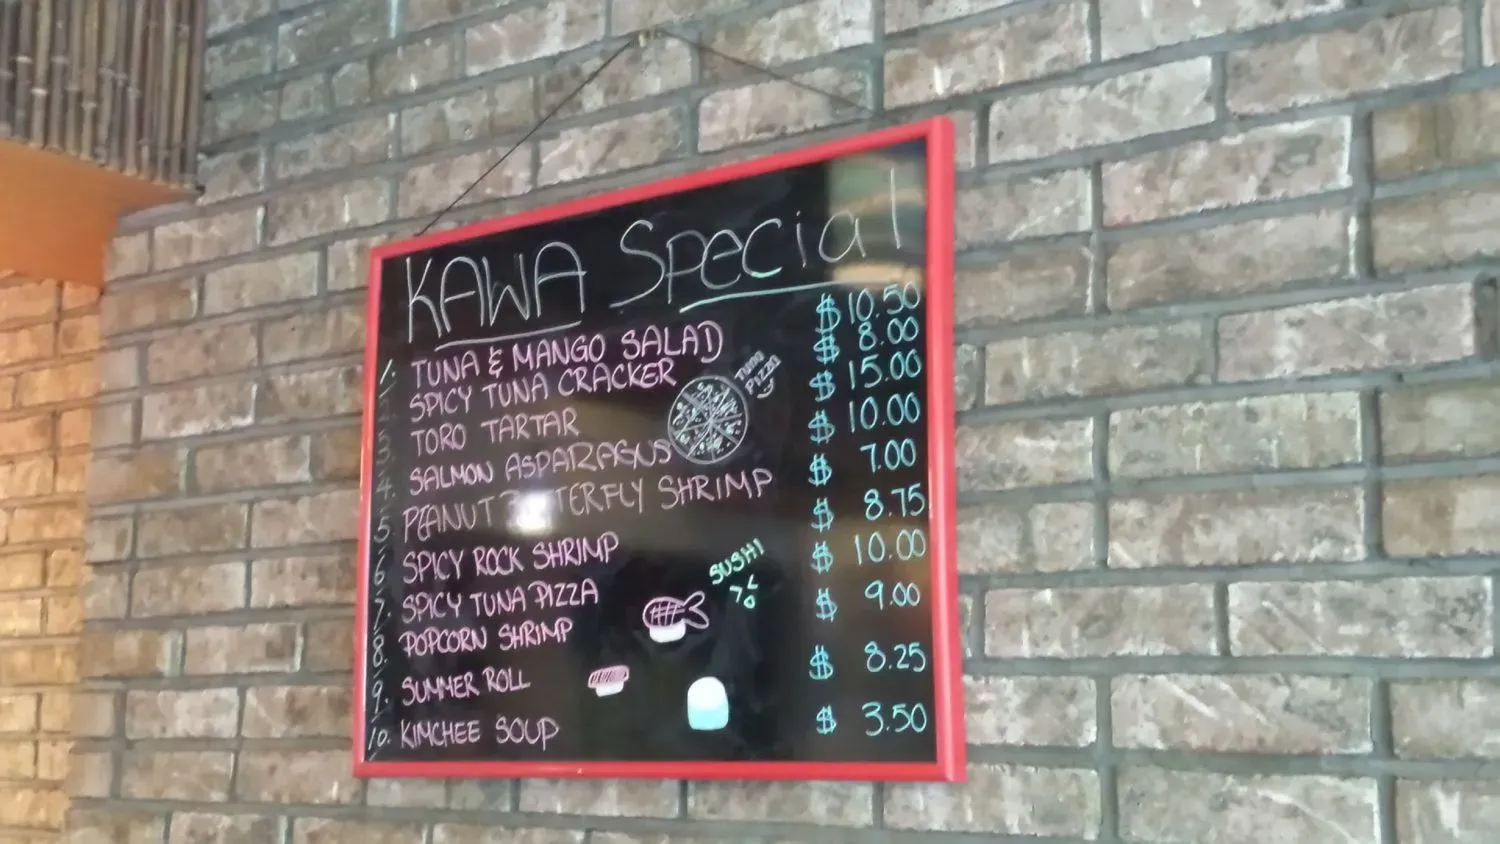 KAWA Special
1. TUNA & MANGO SALAD $ 10.50
2. SPICY TUNA CRACKER $ 8.00
3. TORO TARTAR $ 15.00
4. SALMON ASPARAGUS $ 10.00
5. PEANUT BUTTERFLY SHRIMP $ 7.00
6. SPICY ROCK SHRIMP $ 8.75
7. SPICY TUNA PIZZA $ 10.00
8. POPCORN SHRIMP $ 9.00
9. SUMMER ROLL $ 8.25
10. KIMCHEE SOUP $ 3.50
TUNA
PIZZA
SUSHI